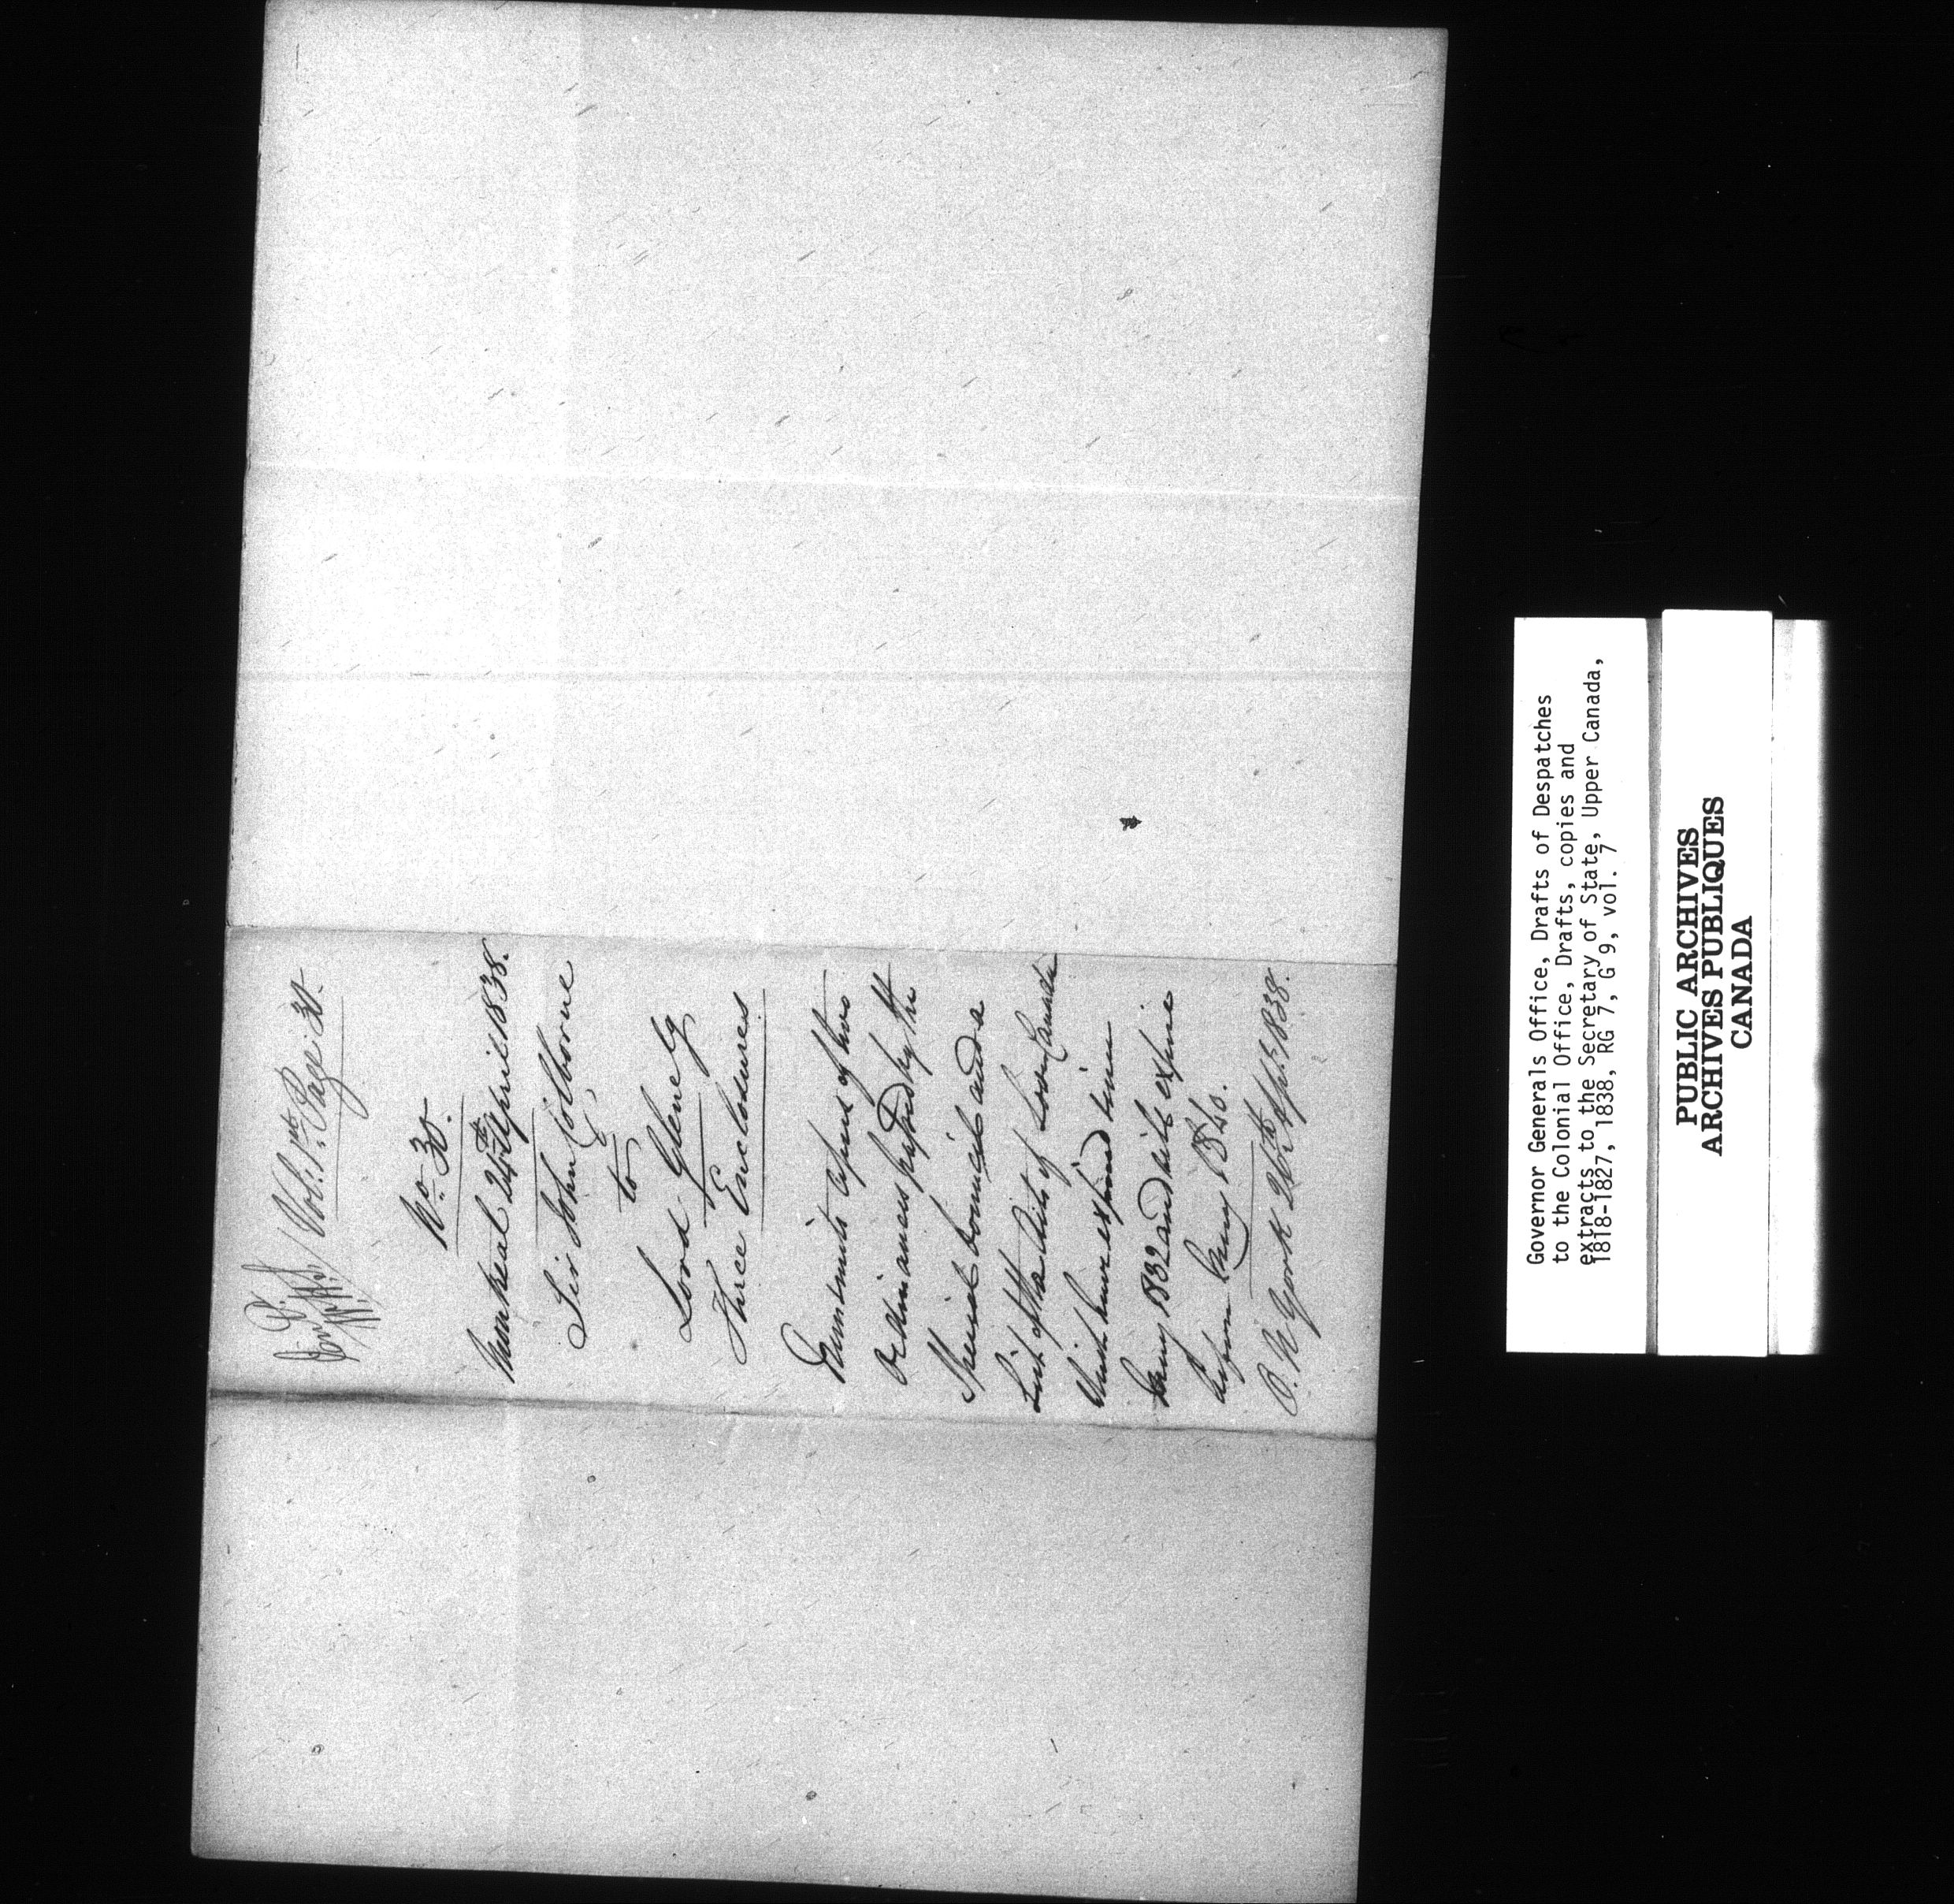 Vol. 1st Page 30.
No. 30.
Montreal 24th April 1838.
Sir John Colborne
to
Lord Glenelg
Three Enclosures
Transmits copies of two
Ordinances passed by the
Special Council and a
List of the Acts of Lower Canada
Which have expired since
1832 and will expire
before 1840.
P. N York 26th Apl. 1838.
Governor Generals Office, Drafts of Despatches
to the Colonial Office, Drafts, copies and
extracts to the Secretary of State, Upper Canada,
1818-1827, 1838, RG 7, G 9, vol. 7
PUBLIC ARCHIVES
ARCHIVES PUBLIQUES
CANADA